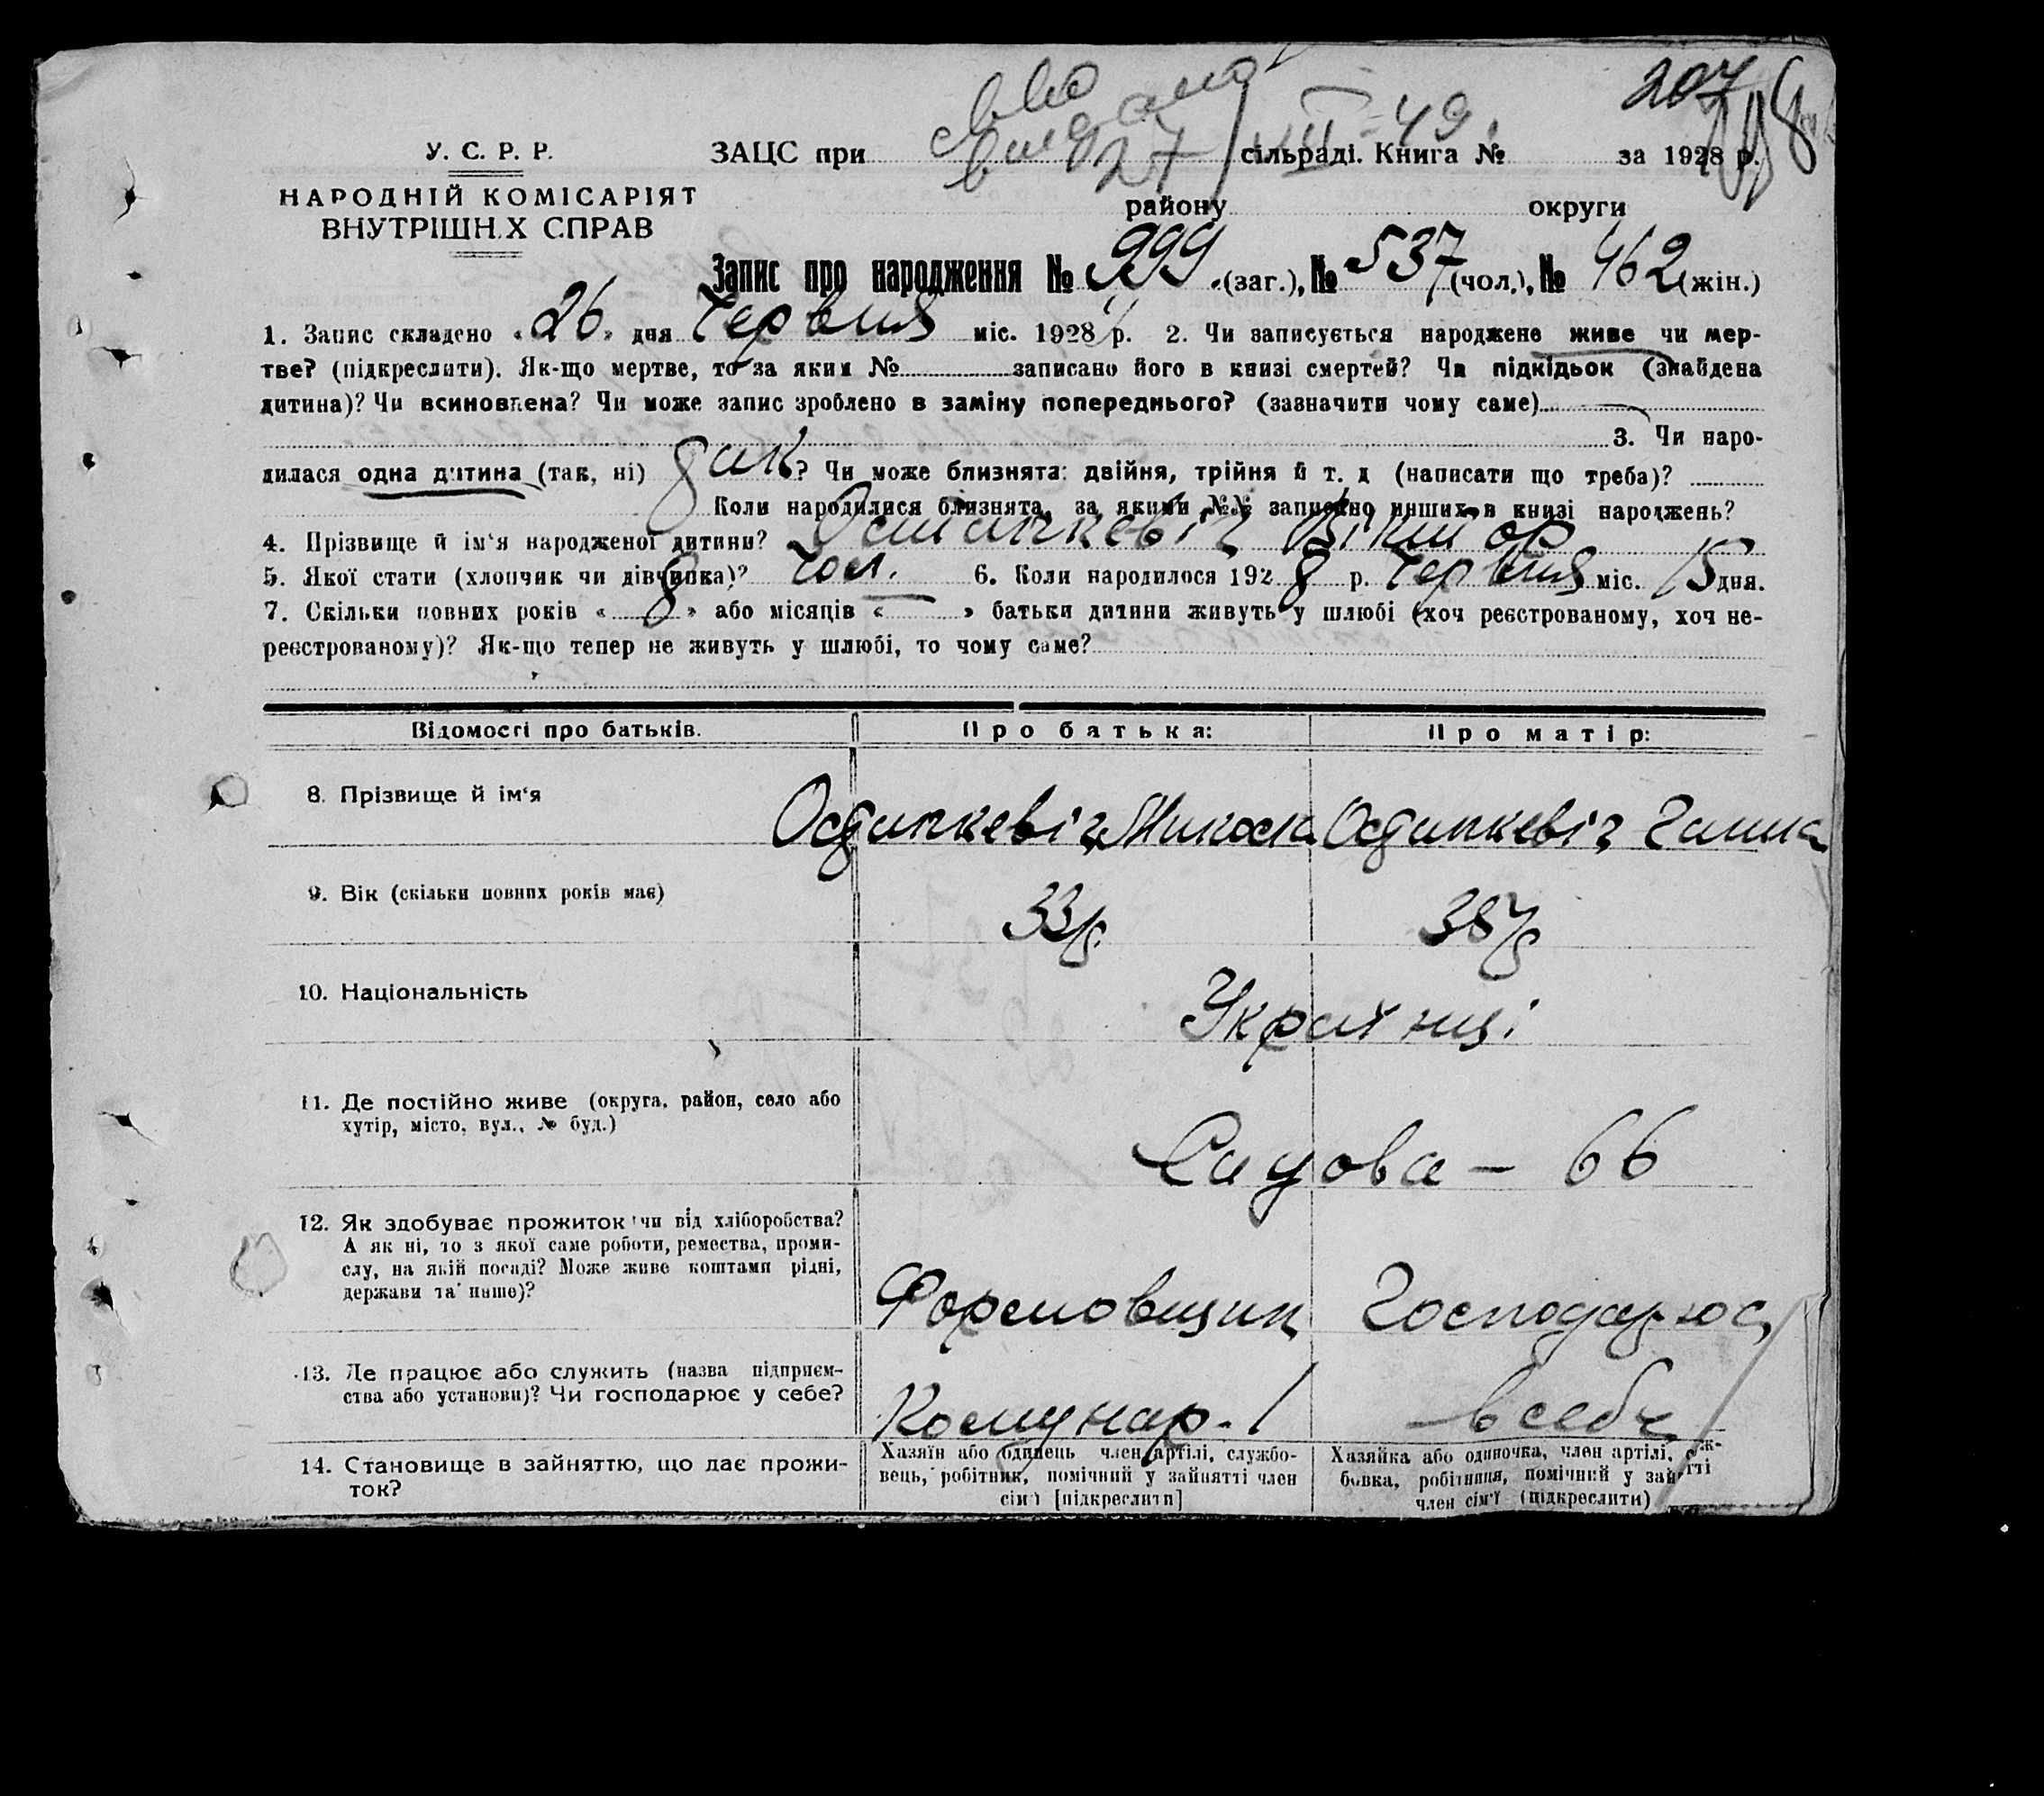 207
У. С. Р. Р.
НАРОДНІЙ КОМІСАРІЯТ
ВНУТРІШН.Х СПРАВ
ЗАЦС при 27 / VII - 49. сільраді. Книга № за 1928 р.
району округи
Запис про народження № 999 (заг.), № 537 (чол.), № 462 (жін.)
1. Запис складено « 26 » дня Червня міс. 1928 р. 2. Чи записується народжене живе чи мер-
тве? (підкреслити). Як-що мертве, то за яким № записано його в книзі смертей? Чи підкідьок (знайдена
дитина)? Чи всиновлена? Чи може запис зроблено в заміну попереднього? (зазначити чому саме)
3. Чи наро-
дилася одна дитина (так, ні) так ? Чи може близнята: двійня, трійня й т. д (написати що треба)?
Коли народилися близнята, за якими №№ записано инших в книзі народжень?
4. Прізвище й ім'я народженої дитини? Віктор
5. Якої стати (хлопчик чи дівчинка)? чол. 6. Коли народилося 1928 р. Червня міс. 15 дня.
7. Скільки повних років « 8 » або місяців « — » батьки дитини живуть у шлюбі (хоч реєстрованому, хоч не-
реєстрованому)? Як-що тепер не живуть у шлюбі, то чому саме?
Відомості про батьків. Про батька: Про матір:
8. Прізвище й ім'я Микола Ганна
9. Вік (скільки повних років має) 33 р. 38 р
10. Національність Українці
11. Де постійно живе (округа, район, село або
хутір, місто, вул., № буд.)
Садова — 66
12. Як здобуває прожиток чи від хліборобства?
А як ні, то з якої саме роботи, ремества, проми-
слу, на якій посаді? Може живе коштами рідні,
держави та инше)?
Формовщик Господарює
13. Де працює або служить (назва підприєм-
ства або установи)? Чи господарює у себе?
Комунар. в себе
14. Становище в зайняттю, що дає прожи-
ток?
Хазяїн або одинець член артілі, службо-
вець, робітник, помічний у зайнятті член
сім'ї [підкреслити]
Хазяйка або одиночка, член артілі, служ-
бовка, робітниця, помічний у зайнятті
член сім'ї (підкреслити)